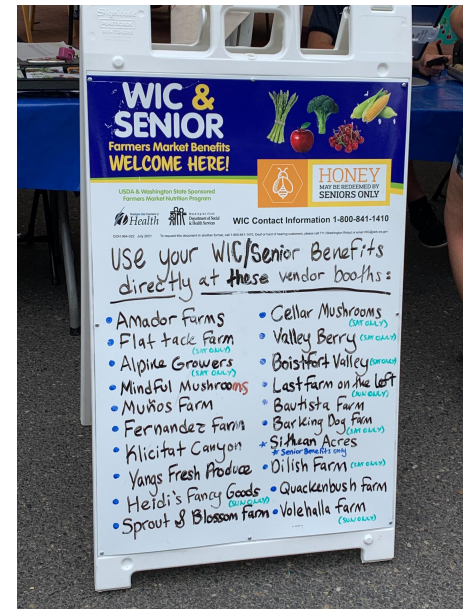 WIC &
SENIOR
Farmers Market Benefits
WELCOME HERE!
HONEY
MAY BE REDEEMED BY
SENIORS ONLY
USDA & Washington State Sponsored
Farmers Market Nutrition Program
Health
Department of Social
& Health Services
WIC Contact Information 1-800-841-1410
USE your WIC/Senior Benefits
directly at these vendor booths:
• Amador Farms
• Flat tack Farm
(SAT ONLY)
• Alpine Growers
(SAT ONLY)
• Mindful Mushrooms
• Muños Farm
• Fernandez Farm
• Klicitat Canyon
• Yangs Fresh Produce
• Heidi's Fancy Goods
(SUN ONLY)
• Sprout & Blossom Farm
• Cellar Mushrooms
(SAT ONLY)
• Valley Berry (SAT ONLY)
• Boistfort Valley (SAT ONLY)
• Last Farm on the Left
(SUN ONLY)
• Bautista Farm
• Barking Dog Farm
(SAT ONLY)
* Sithean Acres
* Senior Benefits only
• Dilish Farm (SAT ONLY)
• Quackenbush Farm
• Volehalla Farm
(SUN ONLY)